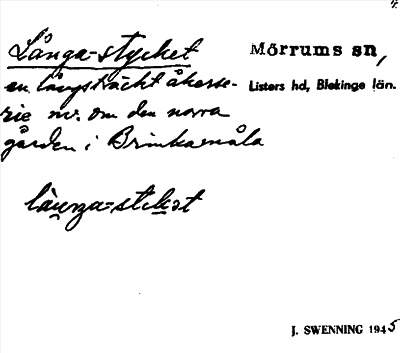 Långa-stycket
Mörrums sn,
en långsträckt åkerse-
Listers hd, Blekinge län.
rie nv. om den norra
gården i Brinkamåla
långa-stekət
J. SWENNING 1945